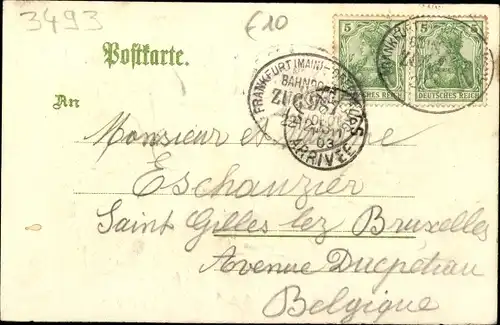 3493
£10
Postkarte.
5
5
DEUTSCHES REICH
DEUTSCHES REICH
FRANKFURT (MAIN)
BAHNPOST
ZUG
ARRIVÉE
03
An
Monsieur et
Eschauzier
Saint Gilles lez Bruxelles
Avenue Ducpétiau
Belgique